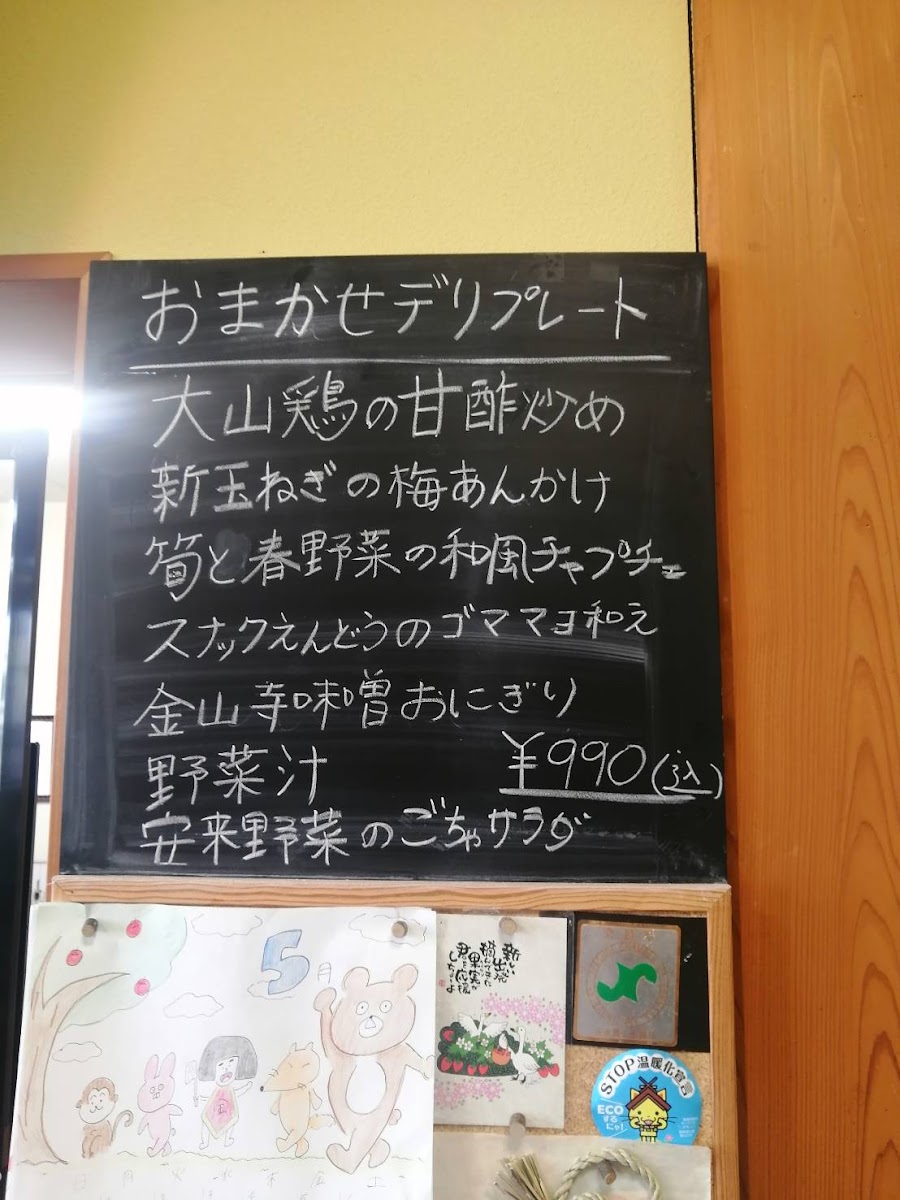 おまかせデリプレート
大山鶏の甘酢炒め
新玉ねぎの梅あんかけ
筍と春野菜の和風チャプチェ
スナックえんどうのゴママヨ和え
金山寺味噌おにぎり
野菜汁 ¥990(込)
安来野菜のごちゃサラダ
5
新しい
出発
STOP温暖化宣言
ECO
するにゃ!
日 月 火 水 木 金 土